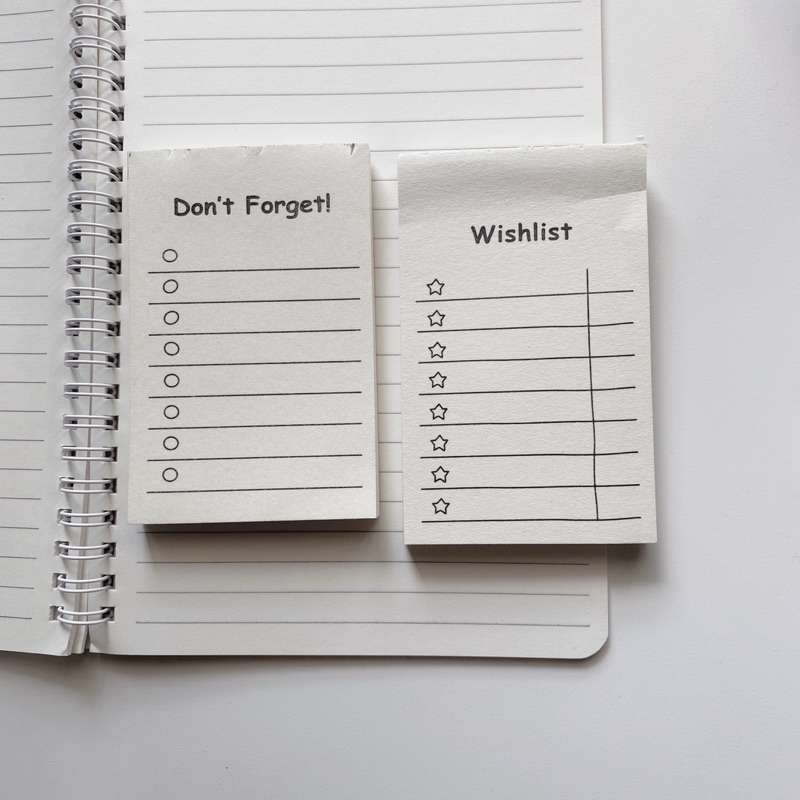 Don't Forget!
Wishlist